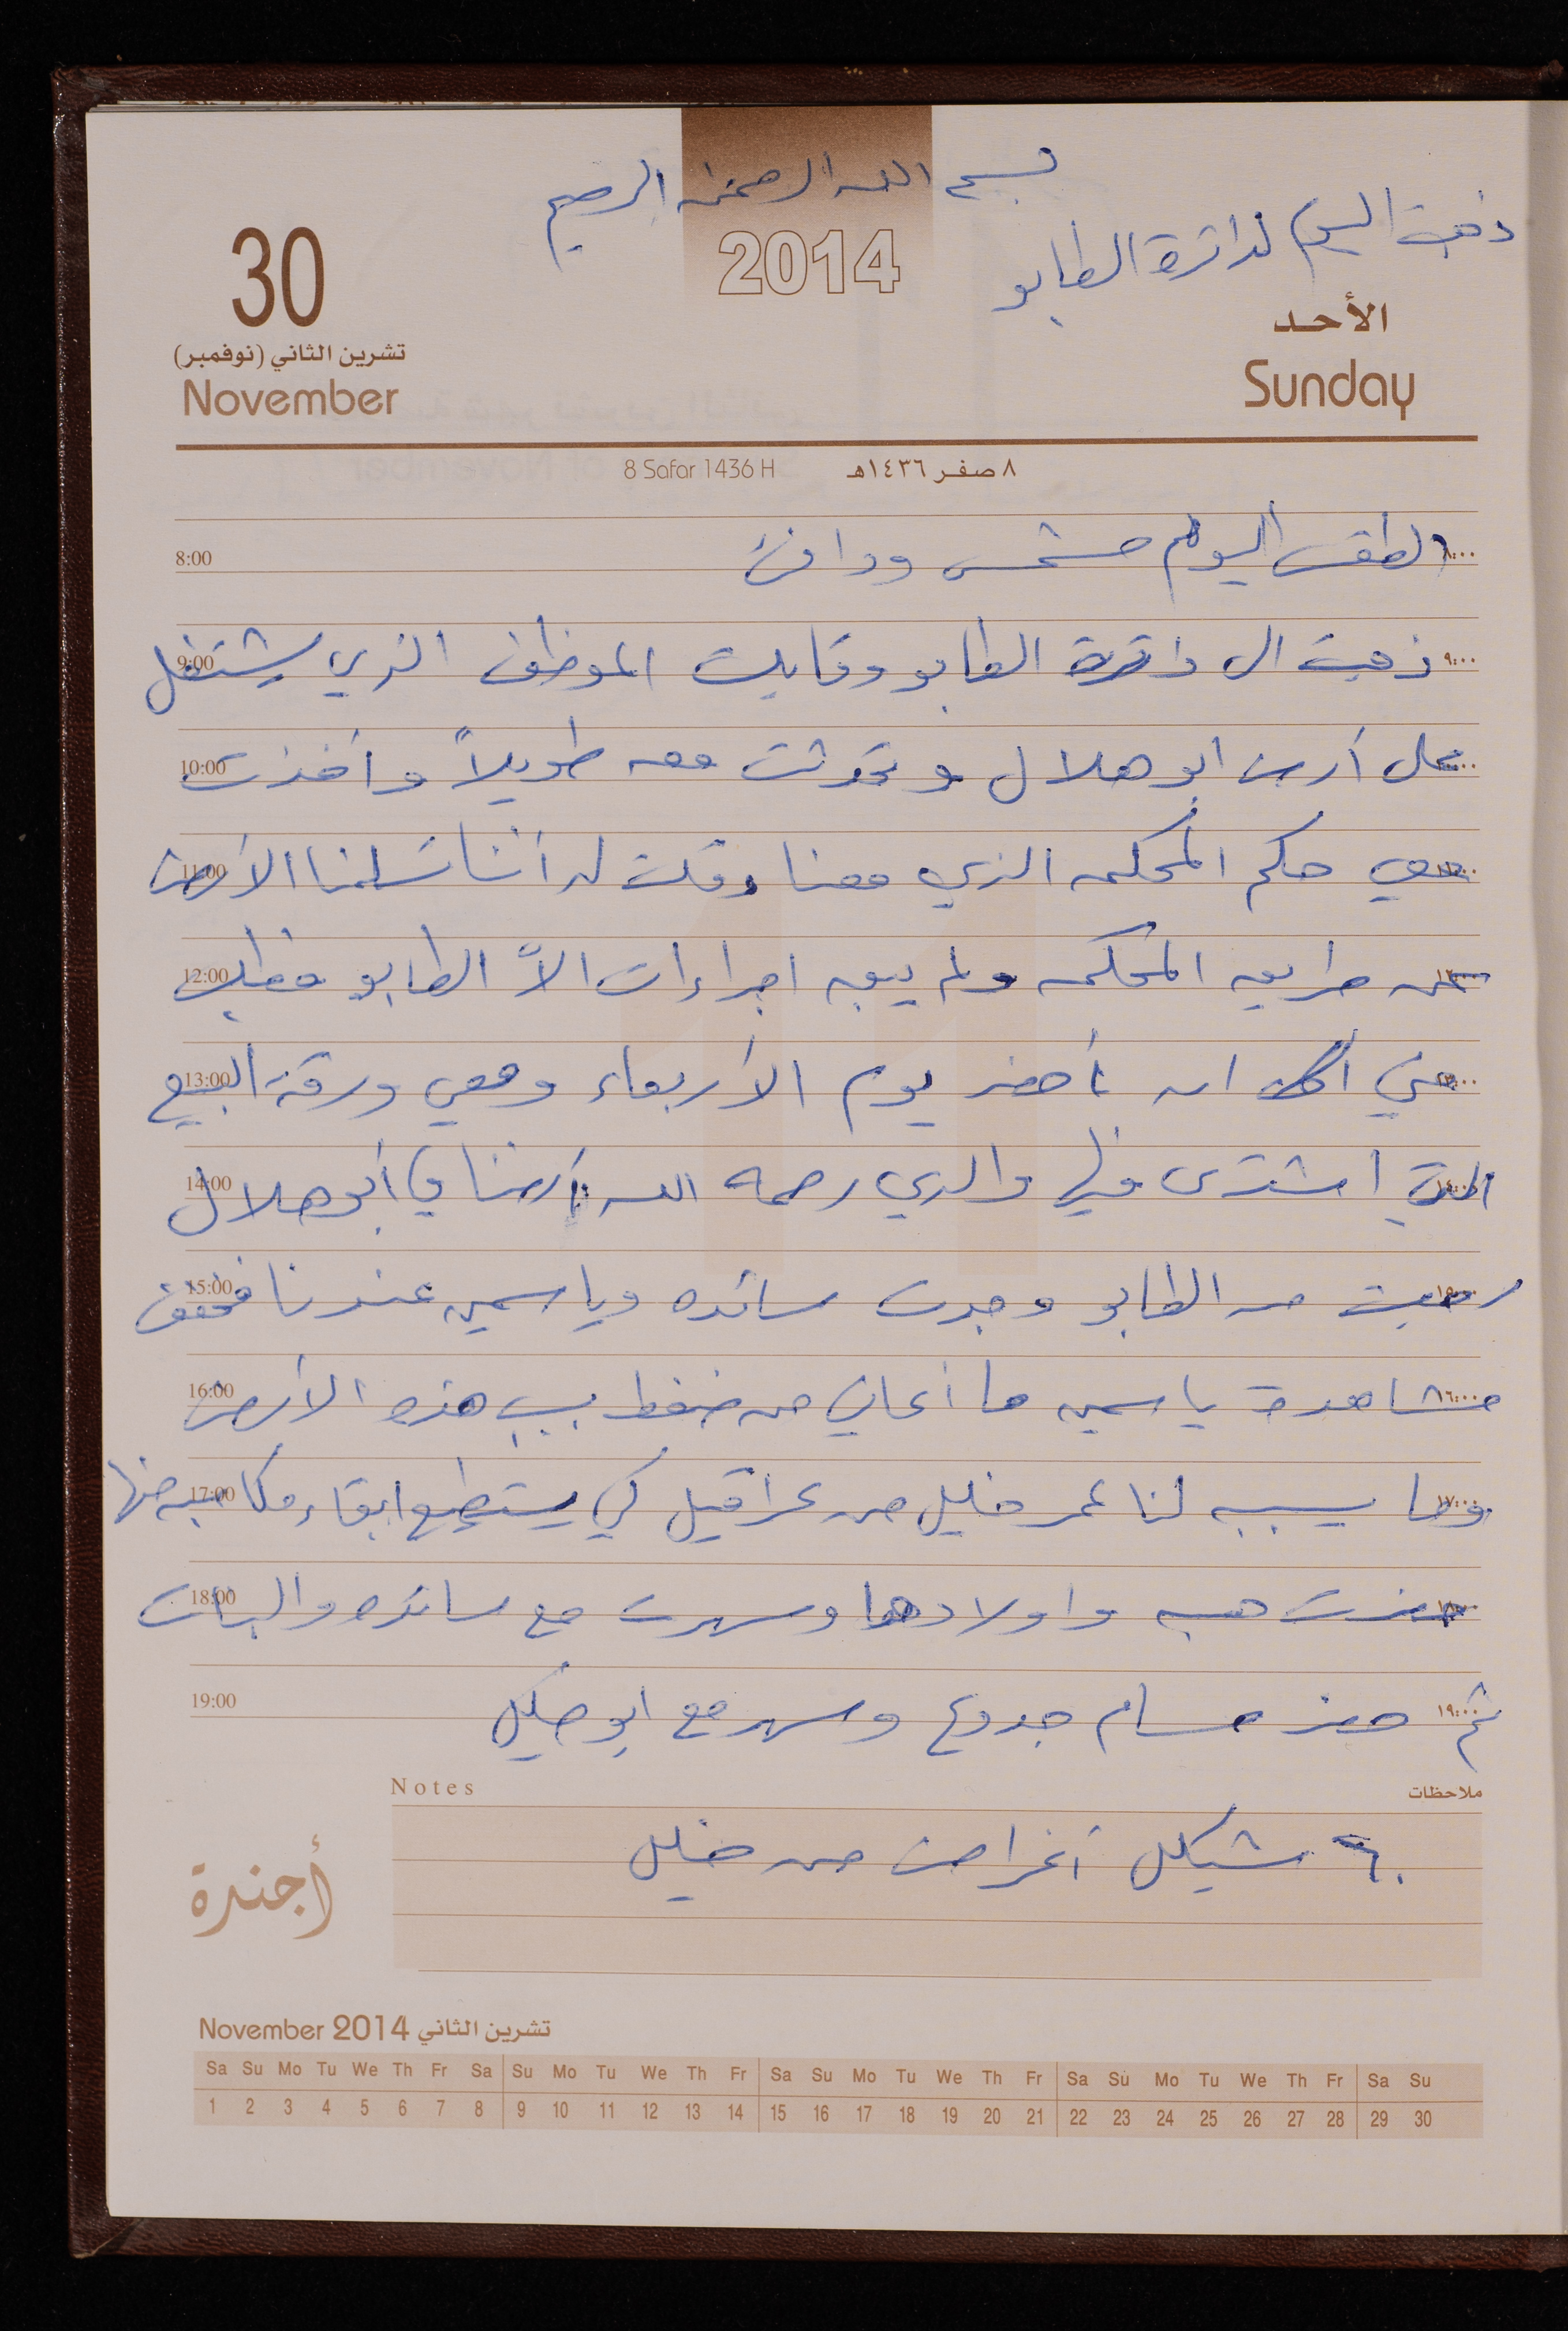 بسم الله الرحمن الرحيم
ذهبت اليوم لدائرة الطابو
30
2014
الأحد
تشرين الثاني (نوفمبر)
November
Sunday
8 Safar 1436 H
٨ صفر ١٤٣٦هـ
8:00 الطقس اليوم مشمس ودافئ ٨:٠٠
9:00 ذهبت الى دائرة الطابو وقابلت الموظف الذي يشتغل ٩:٠٠
10:00 على أرض ابو هلال و تحدثت معه طويلاً وأخذت
11:00 معي حكم المحكمه الذي معنا وقلت له أننا تسلمنا الأرض
12:00 عن طريق المحكمه ولم يبق اجراءات الاّ الطابو فطلب
13:00 مني ان أحضر يوم الأربعاء ومعي ورقة البيع
14:00 التي اشترى فيها والدي رحمه الله أرضنا في أبو هلال
15:00 رجعت من الطابو وجدت سائده وياسمين عندنا فخفف
16:00 مشاهدة ياسمين ما أعاني من ضغط بسبب هذه الأرض ١٦:٠٠
17:00 وما يسببه لنا عمر خليل من عراقيل كي يستطيع ابقاء مكاسبه منها ١٧:٠٠
18:00 حضرت هبه واولادها وسهرت مع سائده والبنات
19:00 ثم حضر حسام جدوع وسهر مع ابو خليل ١٩:٠٠
Notes
ملاحظات
٦٠ شيكل أغراض من خليل
أجندة
November 2014 تشرين الثاني
Sa Su Mo Tu We Th Fr Sa Su Mo Tu We Th Fr Sa Su Mo Tu We Th Fr Sa Su Mo Tu We Th Fr Sa Su
1 2 3 4 5 6 7 8 9 10 11 12 13 14 15 16 17 18 19 20 21 22 23 24 25 26 27 28 29 30